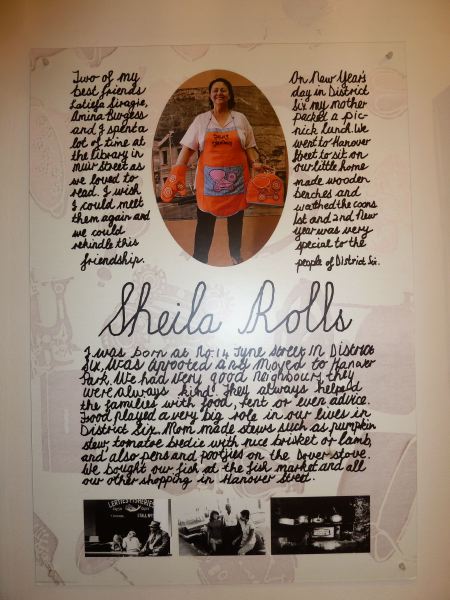 Two of my
best friends
Latiefa Siragie,
Amina Burgess
and I spent a
lot of time at
the library in
muir street as
we loved to
read. I wish
I could meet
them again and
we could
rekindle this
friendship.
On New Year's
day in District
Six my mother
packed a pic-
nick lunch. We
went to Hanover
Street to sit on
our little home
made wooden
benches and
watched the coons
1st and 2nd New
year was very
special to the
people of District Six.
Sheila Rolls
I was born at No. 14 Tyne Street in District
Six, was uprooted and moved to Hanover
Park. We had very good neighbours, they
were always kind. They always helped
the families with food, rent or even advice.
Food played a very big role in our lives in
District Six. Mom made stews such as pumpkin
stew, tomatoe bredie with rice brisket or lamb,
and also pens and pootjies on the Dover stove.
We bought our fish at the fish market and all
our other shopping in Hanover Street.